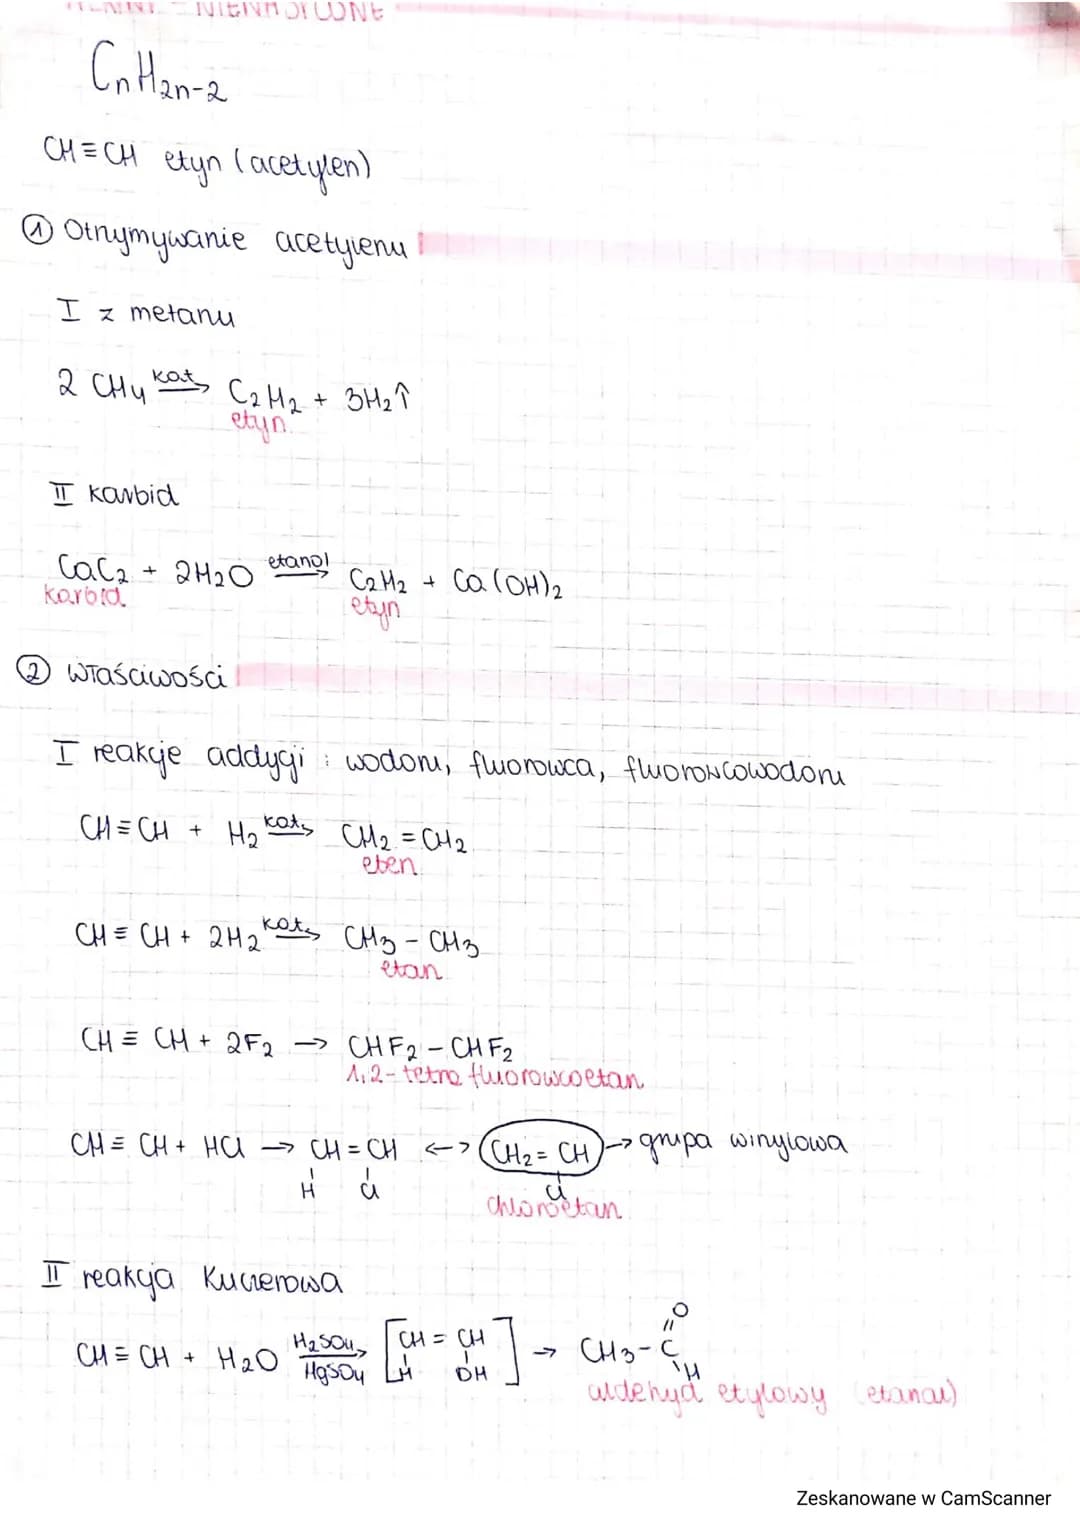 NIENASYCONE
CnH2n-2
CH≡CH etyn (acetylen)
① Otrzymywanie acetylenu
I z metanu
2 CH4 kat→ C2H2 + 3H2↑
etyn
II karbid
CaC2 + 2H2O etanol→ C2H2 + Ca(OH)2
karbid etyn
② właściwości
I reakcje addycji : wodoru, fluorowca, fluorowcowodoru
CH≡CH + H2 kat→ CH2=CH2
eten
CH≡CH + 2H2 kat→ CH3-CH3
etan
CH≡CH + 2F2 → CHF2-CHF2
1,2-tetra fluorowcoetan
CH≡CH + HCl → CH=CH <-> CH2=CH → grupa winylowa
H Cl Cl
chloroetan
II reakcja Kucierowa
CH≡CH + H2O H2SO4→ HgSO4 [CH=CH H OH] → CH3-C =O \H
aldehyd etylowy (etanal)
Zeskanowane w CamScanner